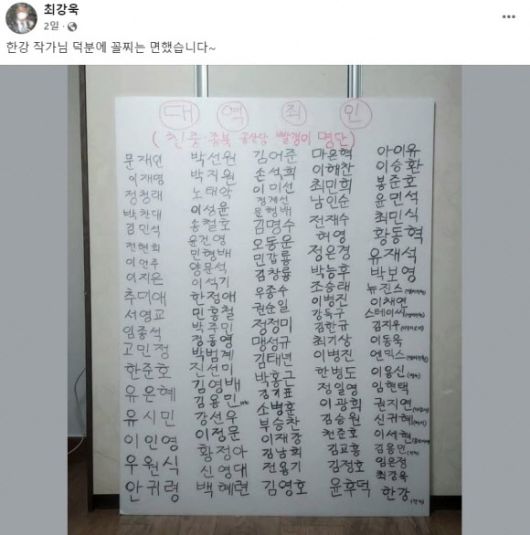 최강욱
2일
한강 작가님 덕분에 꼴찌는 면했습니다~
대 역 죄 인
( 친중·종북 공산당 빨갱이 명단)
문재인
이재명
정청래
박찬대
김민석
전현희
이언주
이지은
추미애
서영교
임종석
고민정
한준호
유은혜
유시민
이인영
우원식
안귀령
박선원
박지원
노태악
이성윤
송철호
윤건영
민형배
양문석
이석기
한정애
민홍철
박주민
정동영
박범계
진선미
김영배
김용민
강선우
이정문
황정아
신영대
백혜련
김어준
손석희
이미선
정계선
문형배
김명수
오동운
민갑룡
김창룡
우종수
권순일
정정미
맹성규
김태년
박홍근
김기표
소병훈
부승찬
이재강
김남희
전용기
김영호
마은혁
이해찬
최민희
남인순
전재수
허영
정은경
박능후
조승래
이병진
강득구
김한규
최기상
이병진
한병도
정일영
이광희
김승원
천준호
김교흥
김정호
윤후덕
아이유
이승환
봉준호
윤민석
최민식
황동혁
유재석
박보영
뉴진스
이채연
스테이씨
김지우
이동욱
엔믹스
이용신
임현택
권지연
신귀혜
이세현
김용민
임은정
최강욱
한강